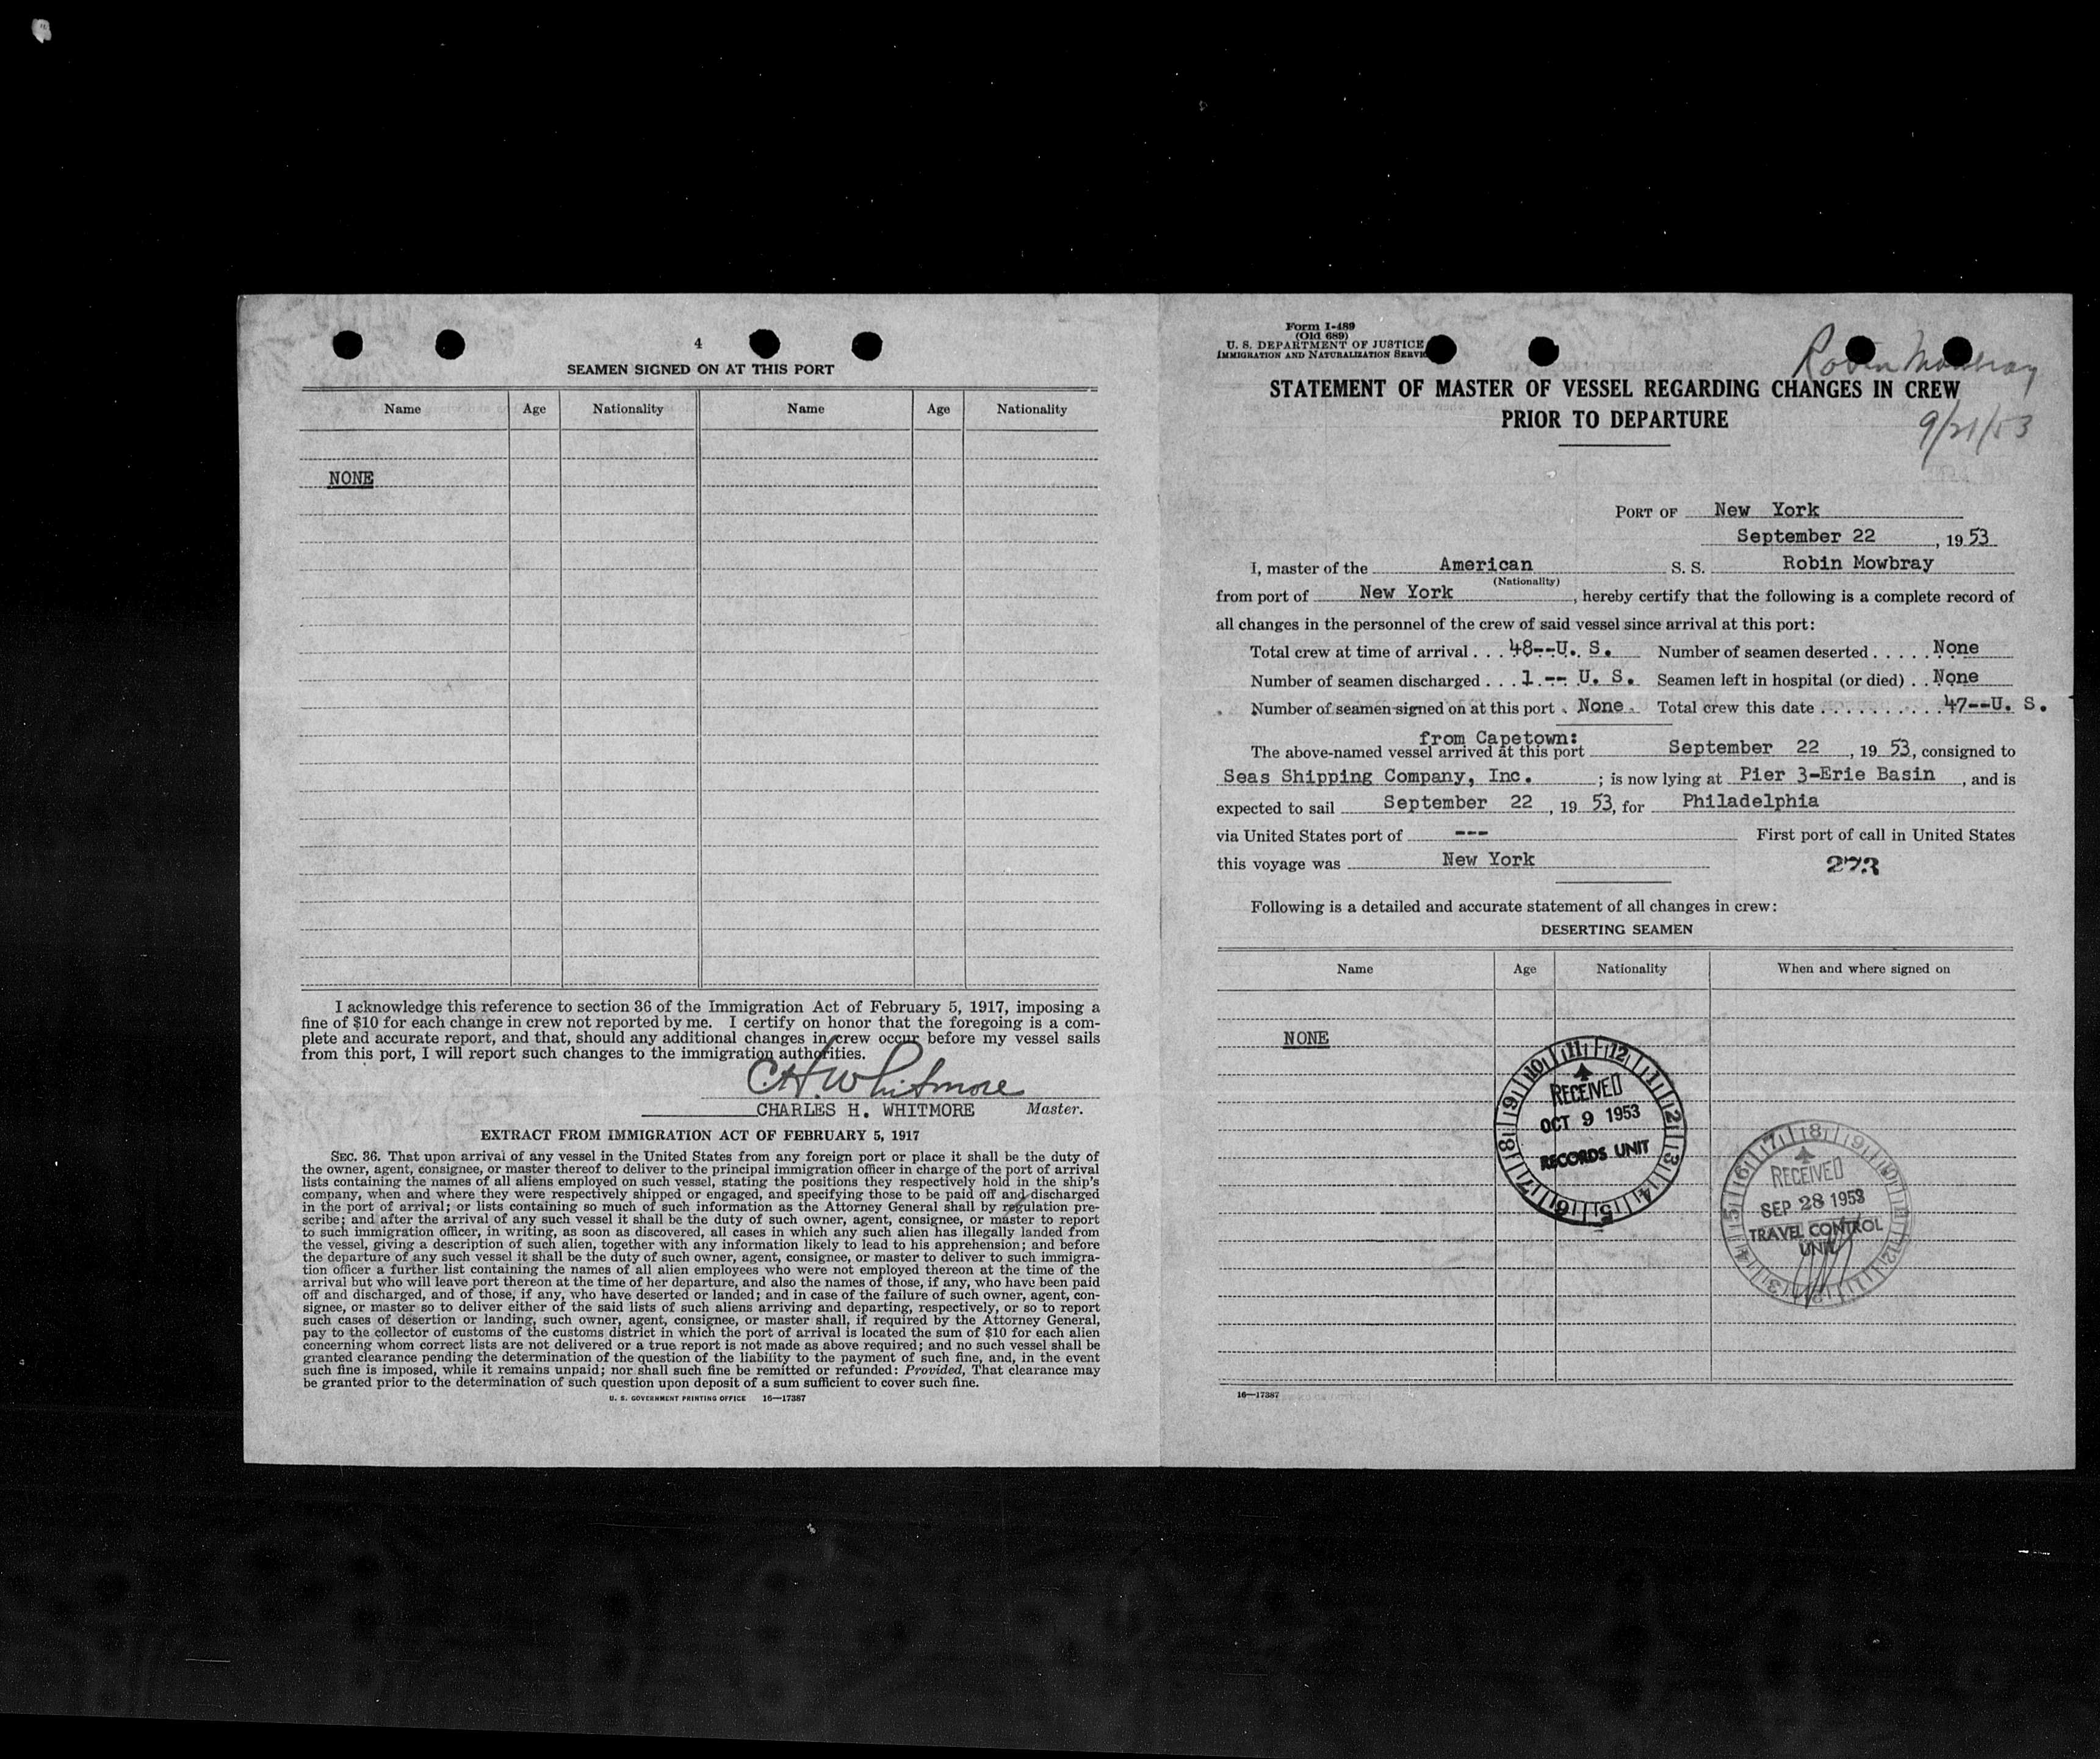 4
SEAMEN SIGNED ON AT THIS PORT
Name Age Nationality Name Age Nationality
NONE
I acknowledge this reference to section 36 of the Immigration Act of February 5, 1917, imposing a
fine of $10 for each change in crew not reported by me. I certify on honor that the foregoing is a com-
plete and accurate report, and that, should any additional changes in crew occur before my vessel sails
from this port, I will report such changes to the immigration authorities.
C H Whitmore
CHARLES H. WHITMORE Master.
EXTRACT FROM IMMIGRATION ACT OF FEBRUARY 5, 1917
SEC. 36. That upon arrival of any vessel in the United States from any foreign port or place it shall be the duty of
the owner, agent, consignee, or master thereof to deliver to the principal immigration officer in charge of the port of arrival
lists containing the names of all aliens employed on such vessel, stating the positions they respectively hold in the ship's
company, when and where they were respectively shipped or engaged, and specifying those to be paid off and discharged
in the port of arrival; or lists containing so much of such information as the Attorney General shall by regulation pre-
scribe; and after the arrival of any such vessel it shall be the duty of such owner, agent, consignee, or master to report
to such immigration officer, in writing, as soon as discovered, all cases in which any such alien has illegally landed from
the vessel, giving a description of such alien, together with any information likely to lead to his apprehension; and before
the departure of any such vessel it shall be the duty of such owner, agent, consignee, or master to deliver to such immigra-
tion officer a further list containing the names of all alien employees who were not employed thereon at the time of the
arrival but who will leave port thereon at the time of her departure, and also the names of those, if any, who have been paid
off and discharged, and of those, if any, who have deserted or landed; and in case of the failure of such owner, agent, con-
signee, or master so to deliver either of the said lists of such aliens arriving and departing, respectively, or so to report
such cases of desertion or landing, such owner, agent, consignee, or master shall, if required by the Attorney General,
pay to the collector of customs of the customs district in which the port of arrival is located the sum of $10 for each alien
concerning whom correct lists are not delivered or a true report is not made as above required; and no such vessel shall be
granted clearance pending the determination of the question of the liability to the payment of such fine, and, in the event
such fine is imposed, while it remains unpaid; nor shall such fine be remitted or refunded: Provided, That clearance may
be granted prior to the determination of such question upon deposit of a sum sufficient to cover such fine.
U. S. GOVERNMENT PRINTING OFFICE 16—17387
Form I-489
(Old 689)
U. S. DEPARTMENT OF JUSTICE
IMMIGRATION AND NATURALIZATION SERVIC
Robin Mowbray
STATEMENT OF MASTER OF VESSEL REGARDING CHANGES IN CREW
PRIOR TO DEPARTURE
9/21/53
PORT OF New York
September 22, 1953
I, master of the American S. S. Robin Mowbray
(Nationality)
from port of New York, hereby certify that the following is a complete record of
all changes in the personnel of the crew of said vessel since arrival at this port:
Total crew at time of arrival . . . 48--U. S. Number of seamen deserted . . . . . None
Number of seamen discharged . . . 1 -- U. S. Seamen left in hospital (or died) . . None
Number of seamen signed on at this port . None. Total crew this date . . . . . . . . . . 47--U. S.
from Capetown:
The above-named vessel arrived at this port September 22, 1953, consigned to
Seas Shipping Company, Inc. ; is now lying at Pier 3-Erie Basin, and is
expected to sail September 22, 1953, for Philadelphia
via United States port of --- First port of call in United States
this voyage was New York
273
Following is a detailed and accurate statement of all changes in crew:
DESERTING SEAMEN
Name Age Nationality When and where signed on
NONE
11 12 1 2 3 4 5 6 7 8 9 10
RECEIVED
OCT 9 1953
RECORDS UNIT
RECEIVED
SEP 28 1953
TRAVEL CONTROL
UNIT
16—17387